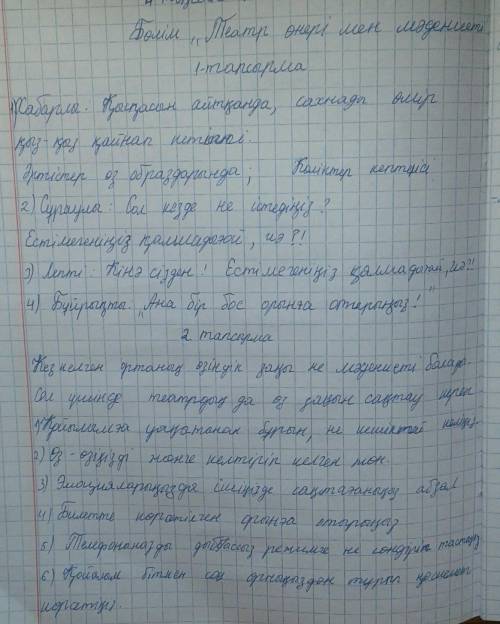 Бөлім „Театр өнері мен мәдениеті
1-тапсырма
1) Хабарлы. Қысқасын айтқанда, сахнада өмір
қыз-қыз қайнап
Әртістер өз образдарында; Көліктер кептелісі
2) Сұраулы: Сол кезде не істедіңіз?
Естімегеніңіз қалмады ғой, иә?!
3) Лепті: Кінә сізден! Естімегеніңіз қалмады ғой, иә?!
4) Бұйрықты. „Ана бір бос орынға отырыңыз!"
2 тапсырма
Кез келген ортаның өзіндік заңы не мәдениеті болады.
Сол үшін де театрдың да өз заңын сақтау керек
1) Қойылымға уақытынан бұрын, не кешікпей келіңіз.
2) Өз-өзіңізді жөнге келтіріп келген жөн.
3) Эмоцияларыңызды ішіңізде сақтағаныңыз абзал
4) Билетте көрсетілген орынға отырыңыз
5) Телефоныңызды дыбыссыз режимге не сөндіріп тастаңыз
6) Қойылым біткен соң орныңыздан тұрып қошемет
көрсетіңіз.